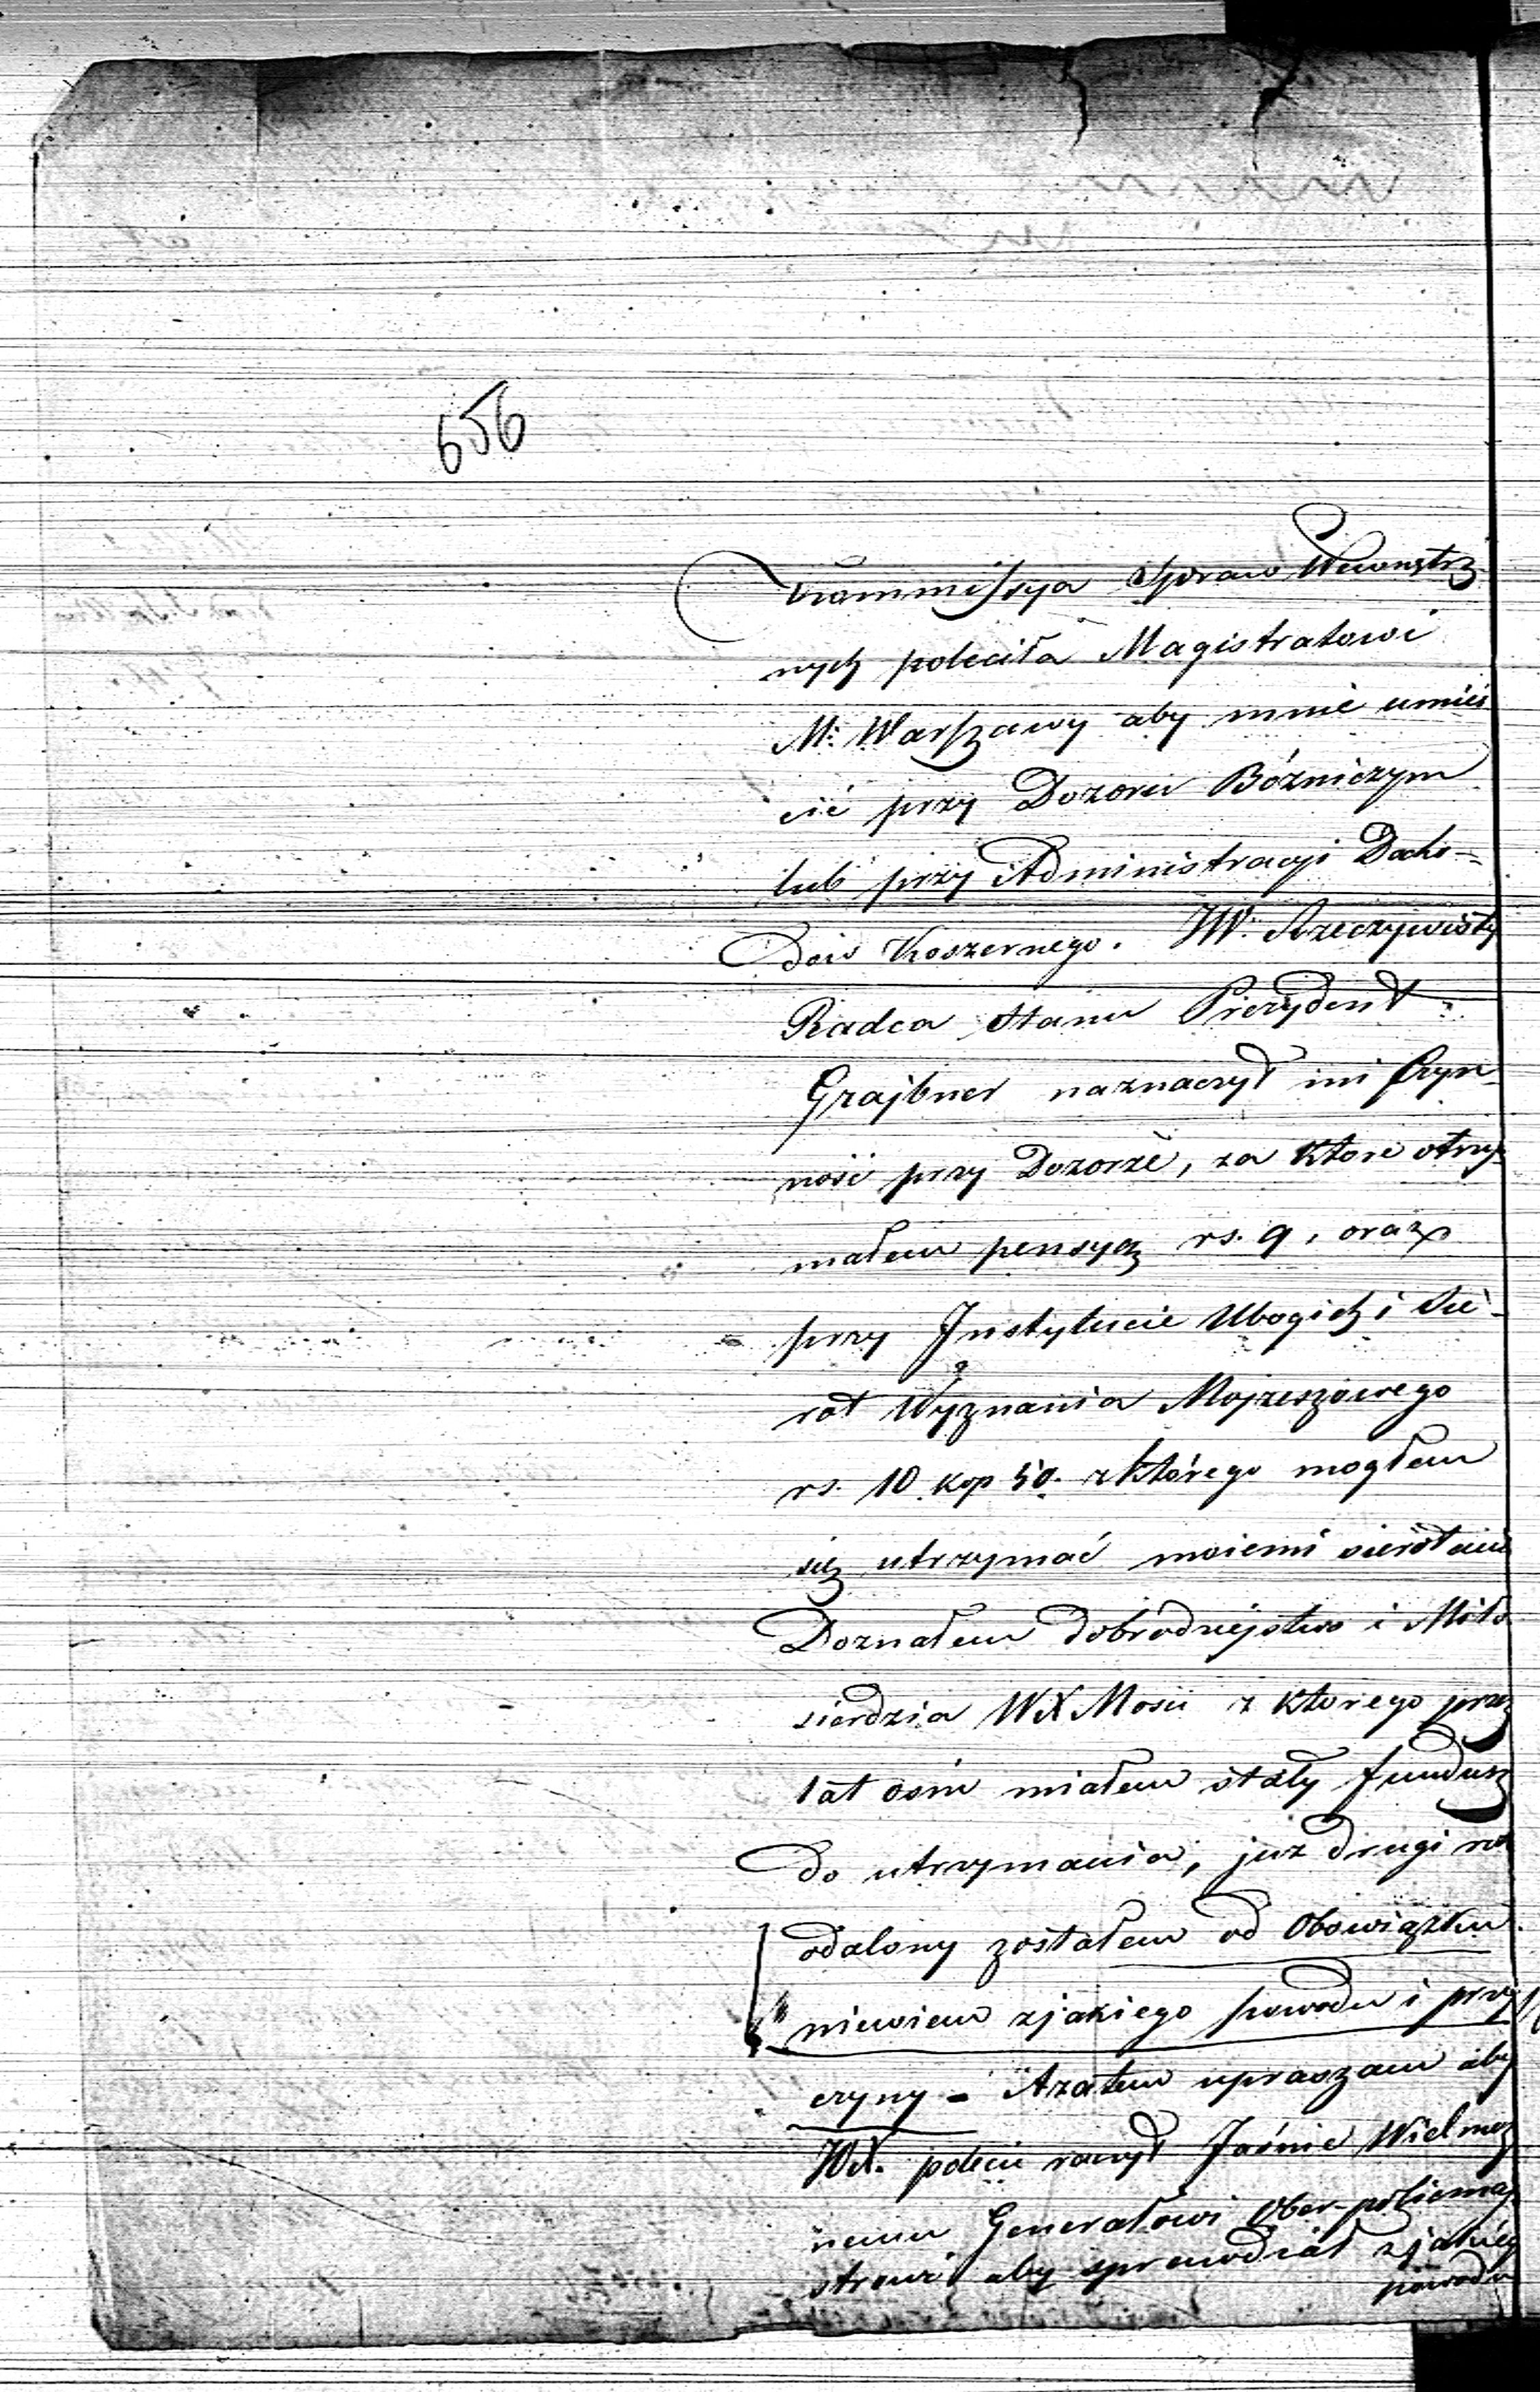 656
Kommissya Spraw Wewnętrz
nych poleciła Magistratowi
M: Warszawy aby mnie umieś
cić przy Dozoru Bózniczym
lub przy Administracyi Docho-
dów Koszernego. JW. Rzeczywisty
Radca Stanu Prezydent
Grajbner naznaczył mi Czyn
ność przy Dozorze, za które otrzy
małem pensyą rs. 9, oraz
przy Instytucie Ubogich i Sie-
rot Wyznania Mojzeszowego
rs. 10 kop 50. z którego mogłem
się utrzymać moiemi sierotami
Doznałem dobrodziejstwo i Miło
sierdzia WX Mosci z ktorego przez
lat osm miałem stały fundusz
do utrzymania, juz drugi rok
odalony zostałem od Obowiązku.
niewiem zjakiego powodu i przy
czyny - Azatem upraszam aby
WX. polecić raczył Jaśnie Wielmoz
nemu Generałowi Ober-policmaj
strowi aby sprawdział zjakieg
powodu